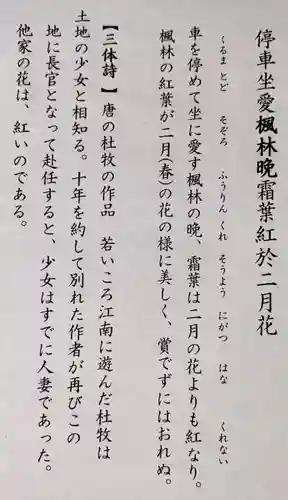 停車坐愛楓林晩霜葉紅於二月花
くるま とど そぞろ ふうりん くれ そうよう にがつ はな くれない
車を停めて坐に愛す楓林の晩、霜葉は二月の花よりも紅なり。
楓林の紅葉が二月(春)の花の様に美しく、賞でずにはおれぬ。
【三体詩】唐の杜牧の作品 若いころ江南に遊んだ杜牧は
土地の少女と相知る。十年を約して別れた作者が再びこの
地に長官となって赴任すると、少女はすでに人妻であった。
他家の花は、紅いのである。